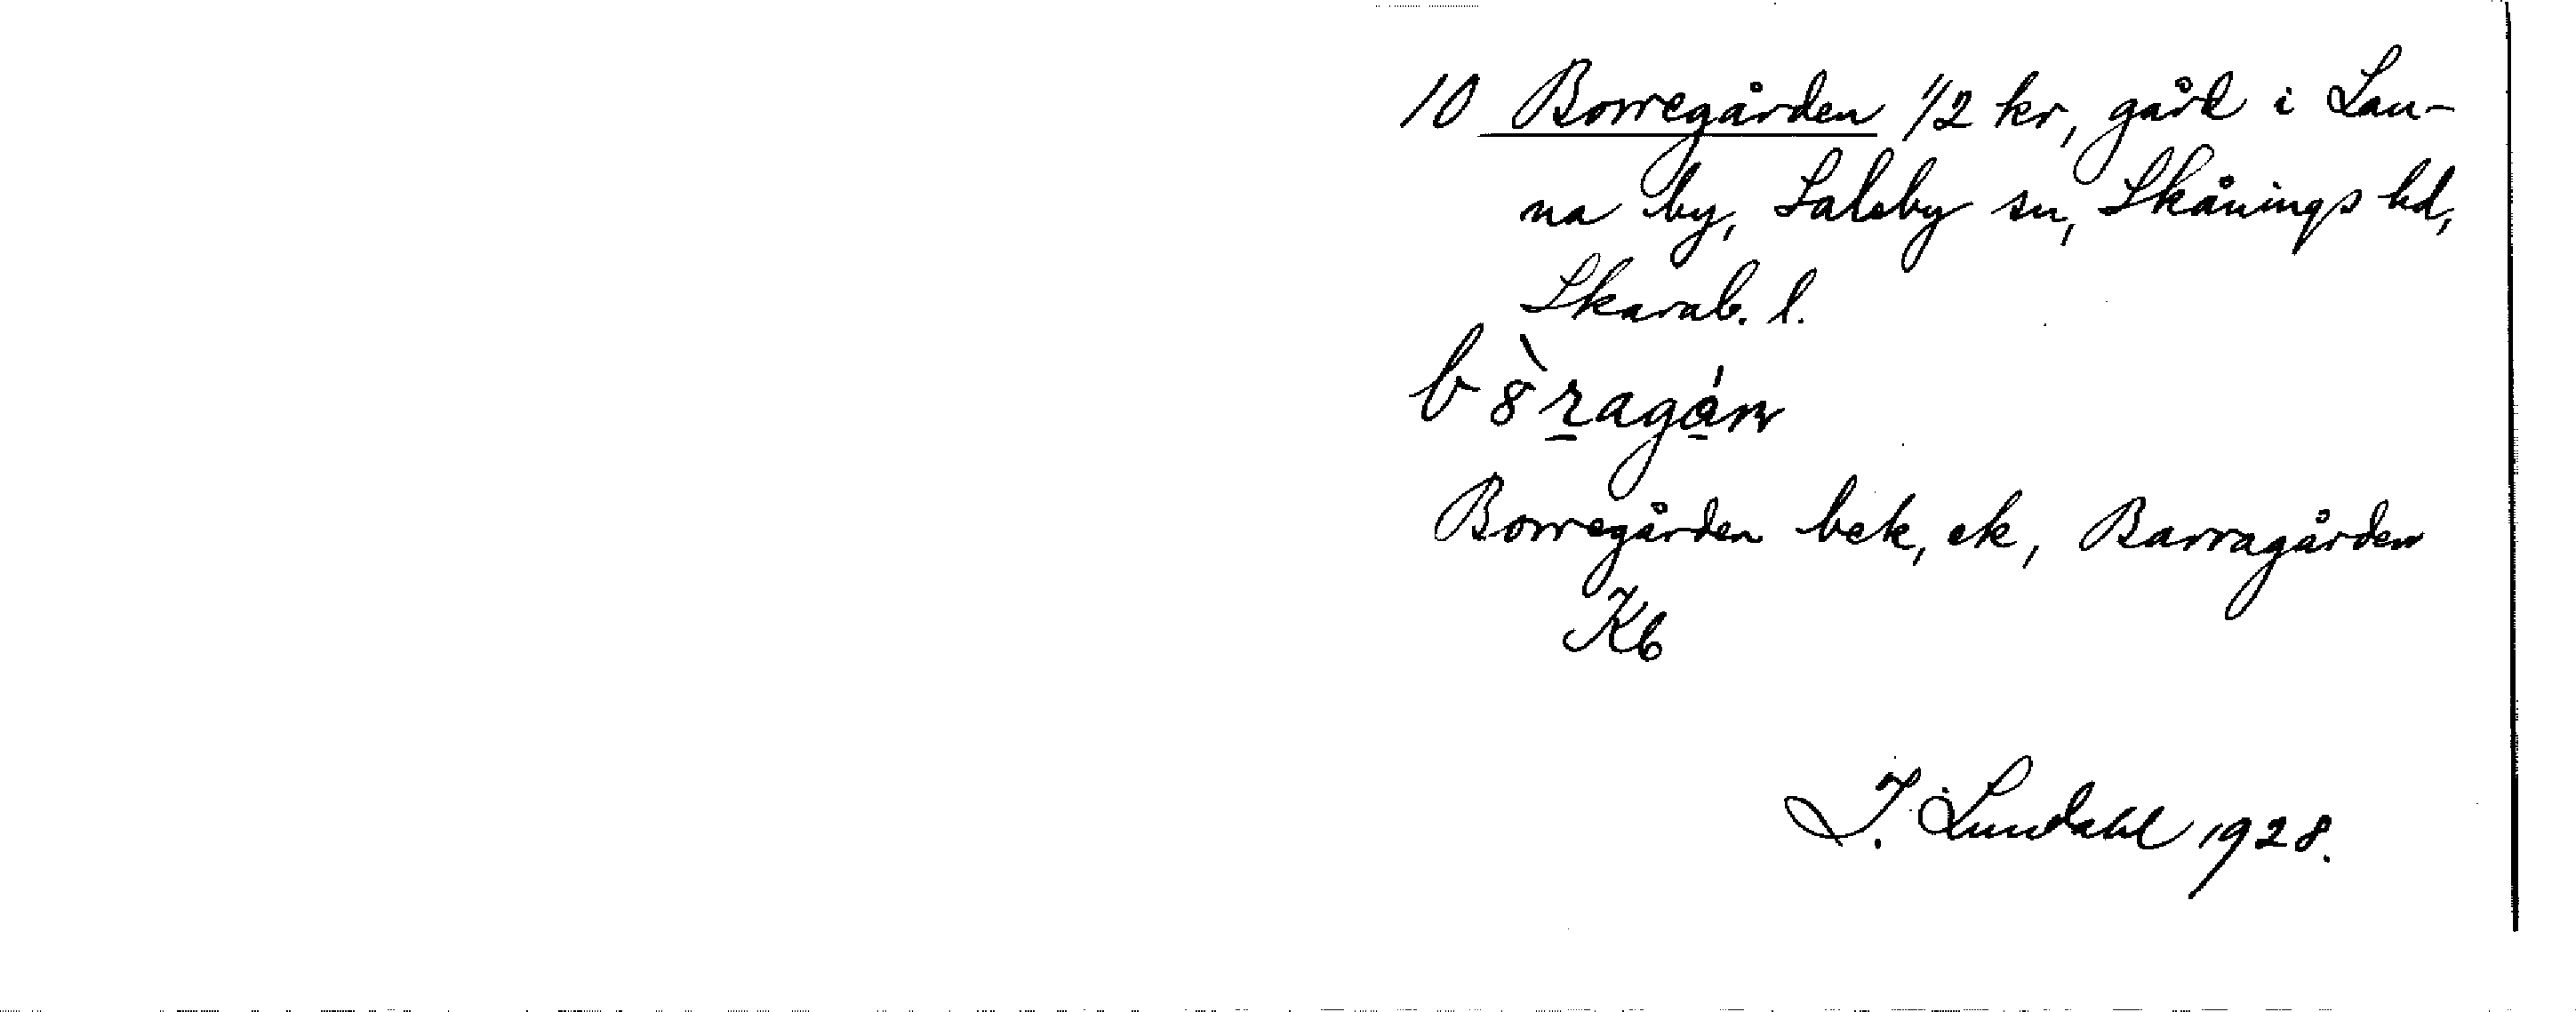 10 Borregården 1/2 kr, gård i Lan-
na by, Saleby sn, Skånings hd,
Skarab. l.
b8̀ragán
Borregården bek, ek, Barragården
Kb
I. Lundahl 1928.